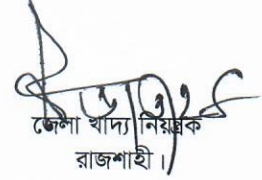 জেলা খাদ্য নিয়ন্ত্রক
রাজশাহী।